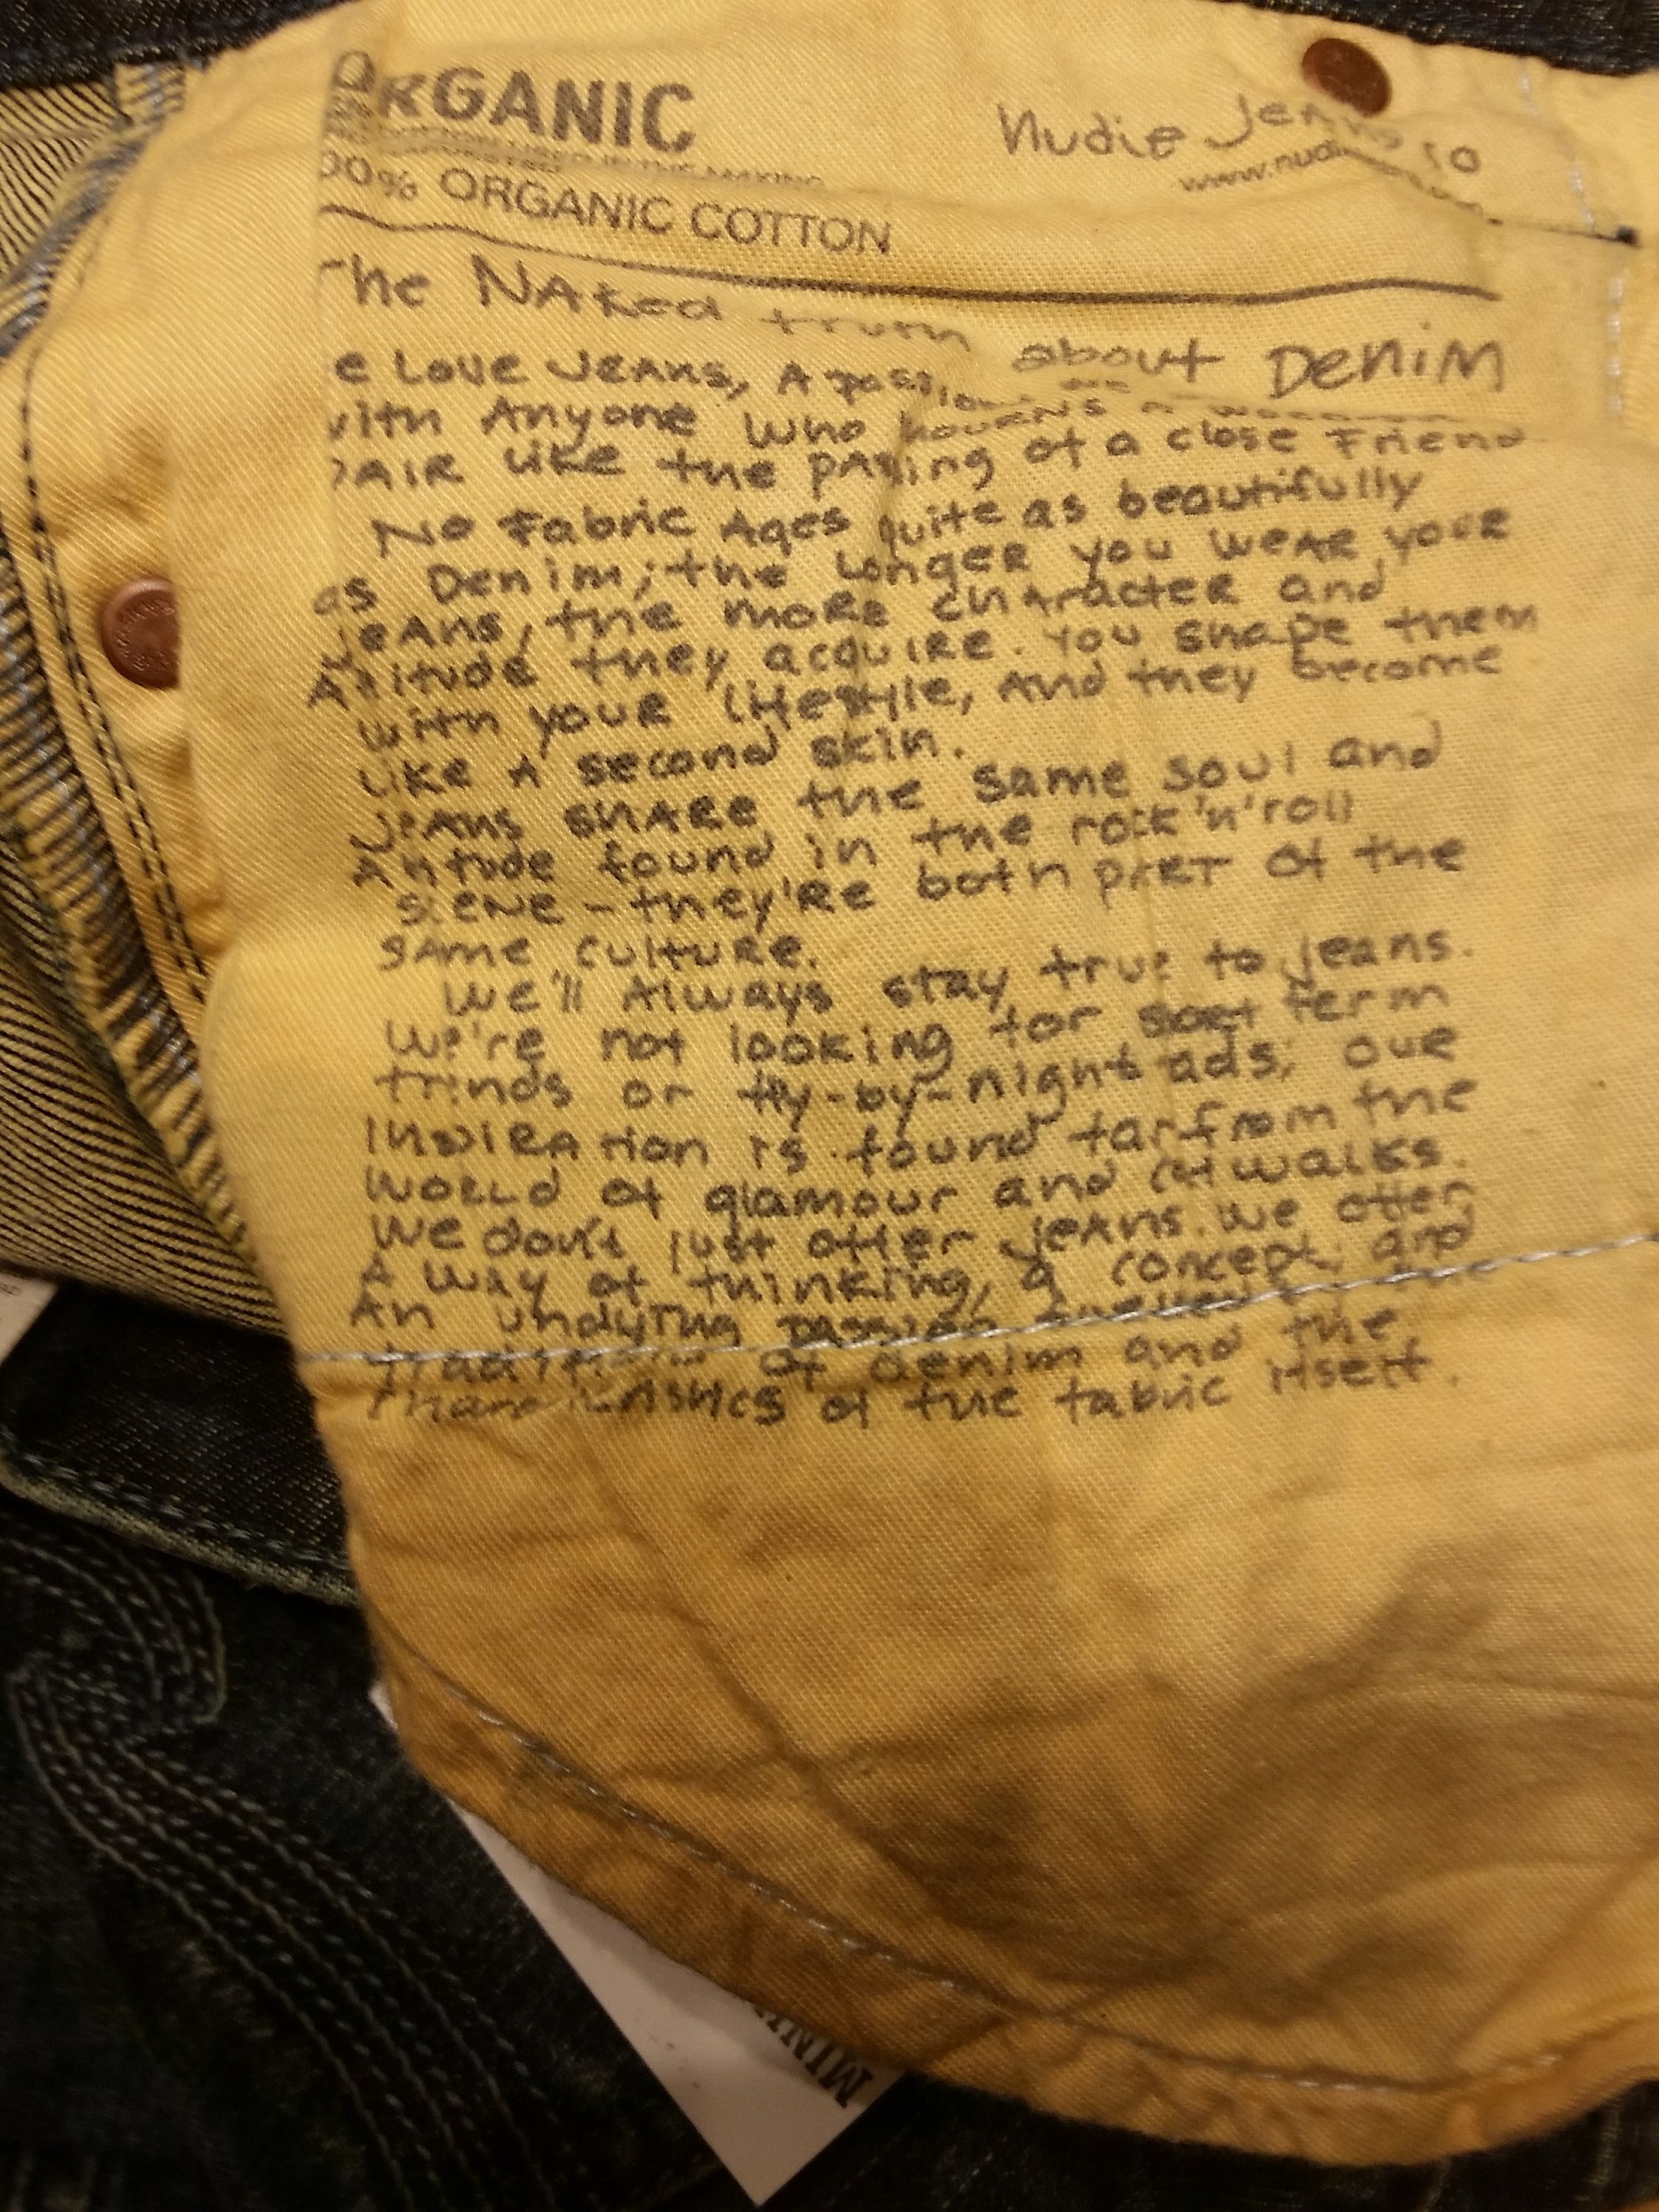 ORGANIC
Nudie Jeans co
www.nudi
00% ORGANIC COTTON
The NAked truth about DeniM
e Love JeANs, A passion we
with Anyone Who MOURNS A
PAIR like the pAsing of a close Friend
No Fabric Ages quite as beautifully
as Denim; the longer you weAR youR
JeAns, the moRe chAracteR and
Attitude they acquiRe. You shape them
with youR lifestyle, And they become
like A second skin.
JeAns shARe the same soul and
Attitude found in the rock'n'roll
sceNe - they'Re both pART of the
sAme cultuRe.
We'll Always stay true to jeans.
We're not looking for term
trends or fly-by-night ads; ouR
InspiRAtion is found far from the
WoRLd of glamour and catwalks.
We don't just offer jeAns. we offer
A wAy of thinking, a concept and
An undying passion
traditions of denim and the
characteristics of the fabric itself.
MIN